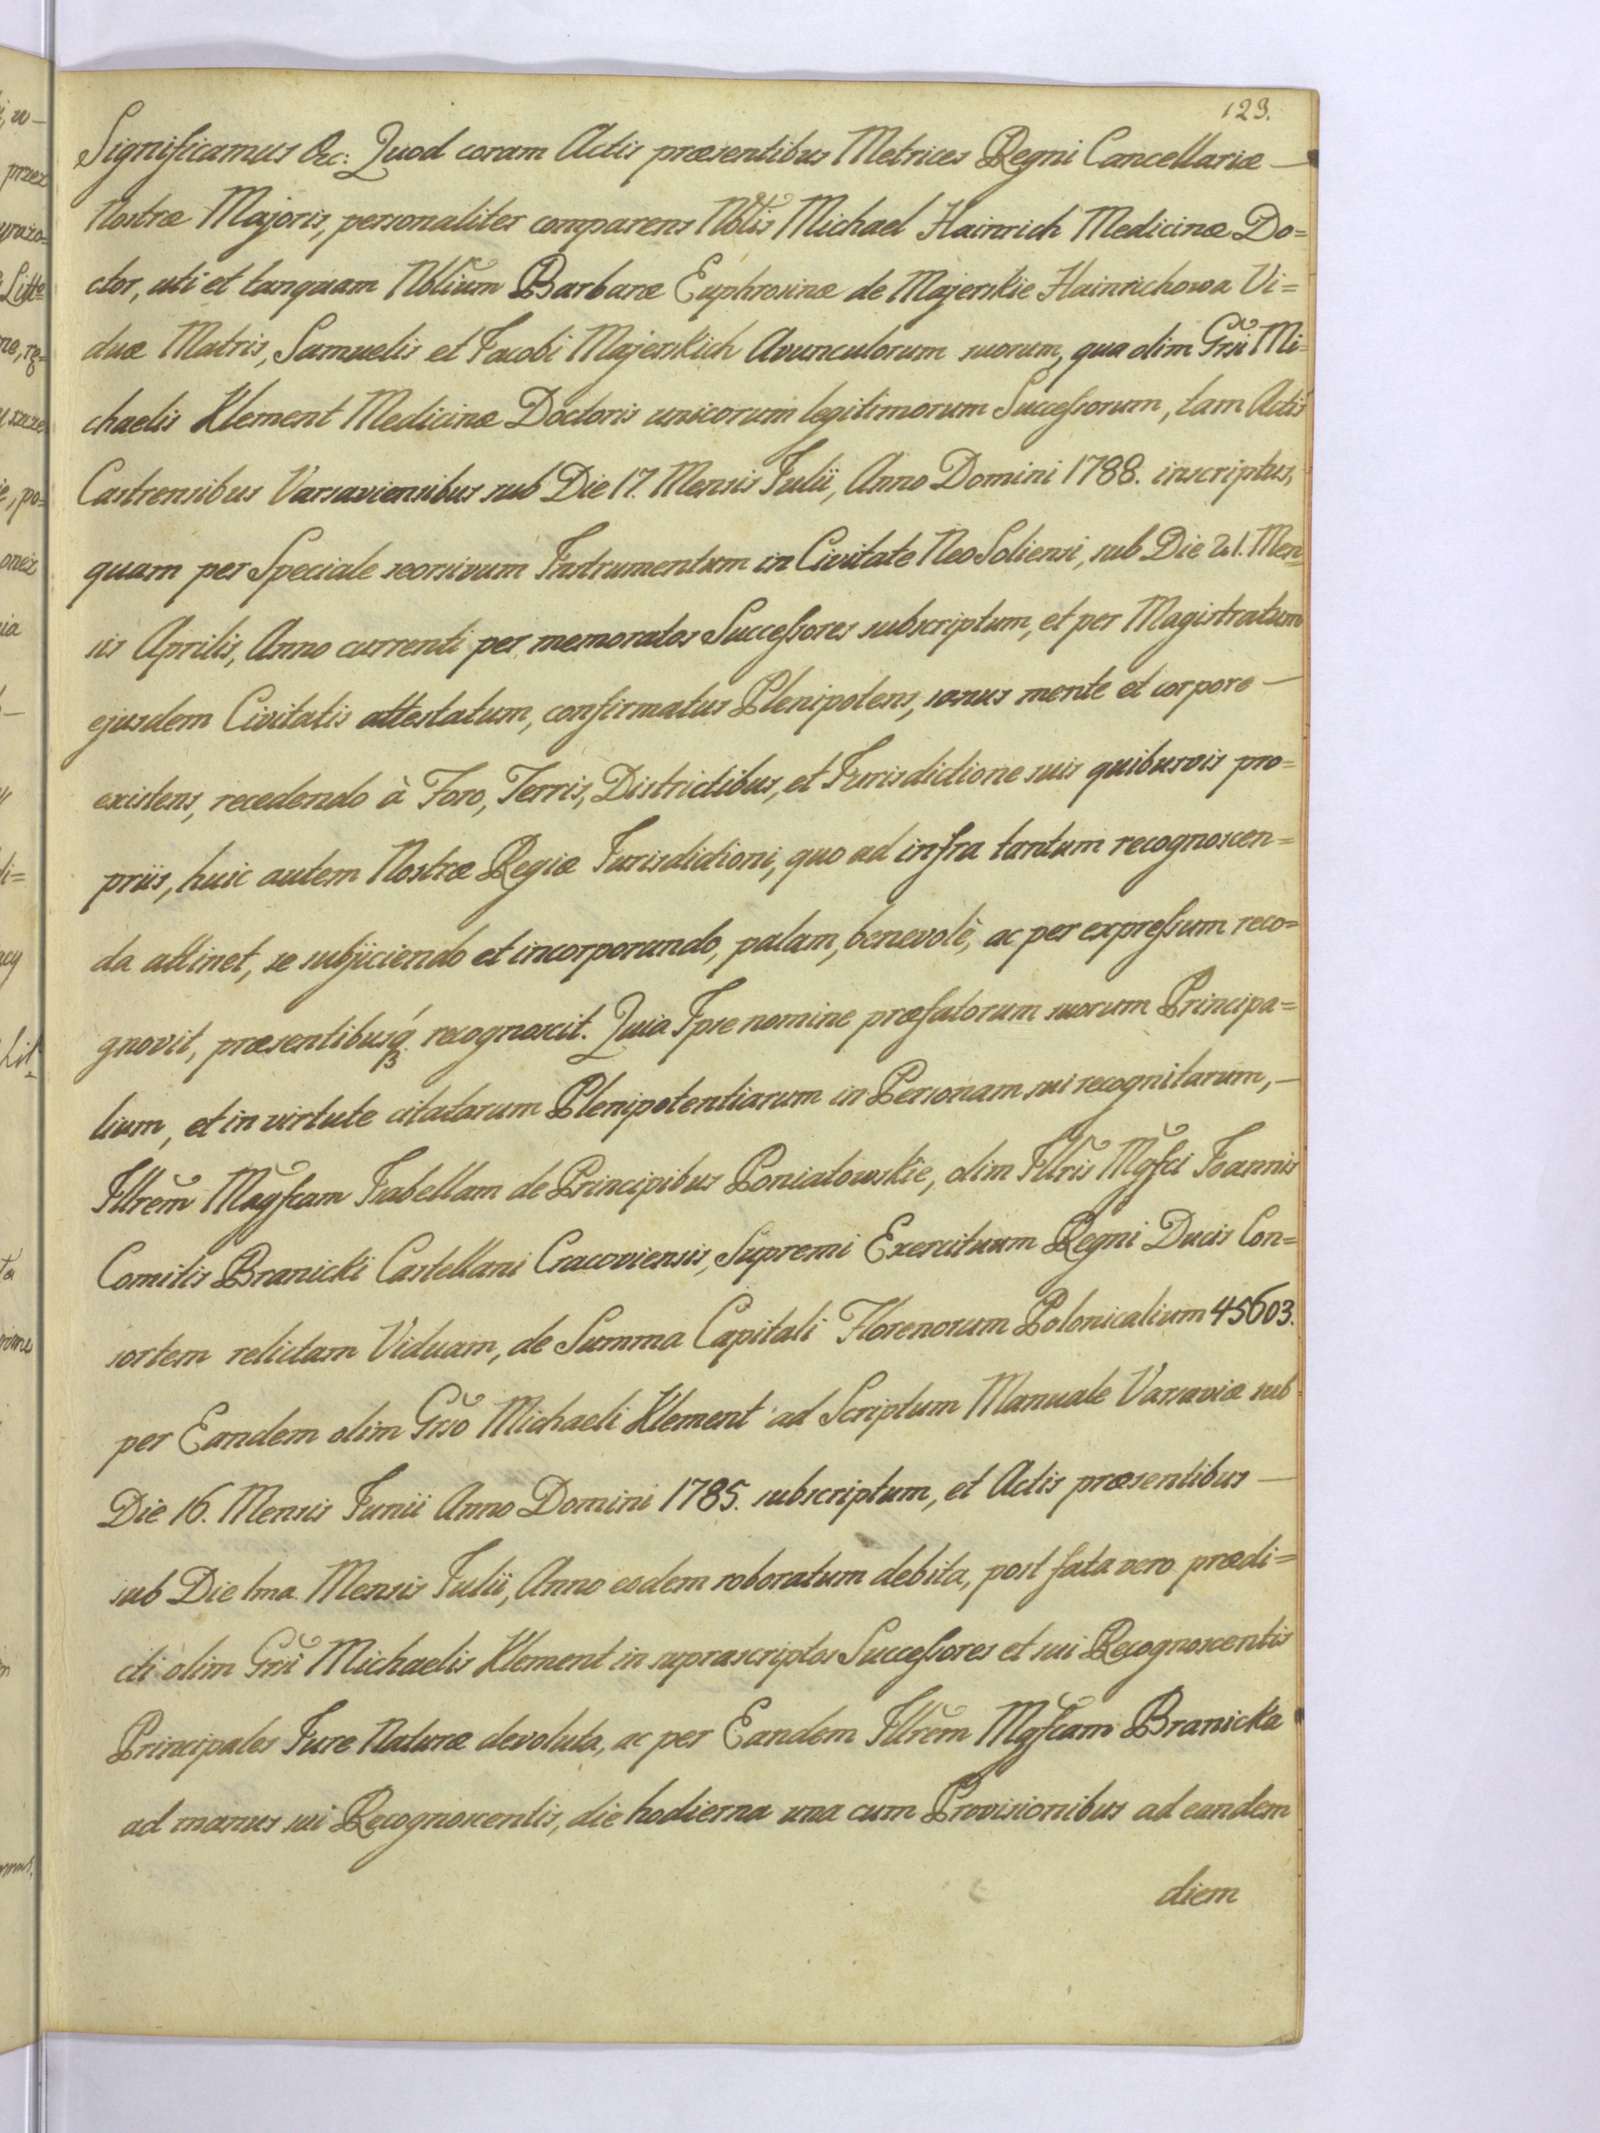 123.
Significamus &c: Quod coram Actis præsentibus Metrices Regni Cancellariæ —
Nostræ Majoris, personaliter comparens Nbtis Michael Hainrich Medicinæ Do=
ctor, uti et tanquam Nblium Barbaræ Euphrosinæ de Majerskie Hainrichowa Vi=
duæ Matris, Samuelis et Jacobi Majerskich Avunculorum suorum, qua olim Grsi Mi=
chaelis Klement Medicinæ Doctoris unicorum legitimorum Successorum, tam Actis
Castrensibus Varsaviensibus sub Die 17. Mensis Julii, Anno Domini 1788. inscriptus,
quam per Speciale seorsivum Instrumentum in Civitate NeoSoliensi, sub Die 21. Men=
sis Aprilis, Anno currenti per memoratos Successores subscriptum, et per Magistratum
ejusdem Civitatis attestatum, confirmatus Plenipotens, sanus mente et corpore —
existens, recedendo à Foro, Terris, Districtibus, et Jurisdictione suis quibusvis pro=
priis, huic autem Nostræ Regiæ Jurisdictioni, quo ad infra tantum recognoscen=
da attinet, se subjiciendo et incorporando, palam, benevolè, ac per expressum reco=
gnovit, præsentibusq́ recognoscit. Quia Ipse nomine præfatorum suorum Principa=
lium, et in virtute citatarum Plenipotentiarum in Personam sui recognitarum, —
Illrem Magfcam Isabellam de Principibus Poniatowskie, olim Illris Mgfci Joannis
Comitis Branicki Castellani Cracoviensis, Supremi Exercituum Regni Ducis Con=
sortem relictam Viduam, de Summa Capitali Florenorum Polonicalium 45603.
per Eandem olim Grso Michaeli Klement ad Scriptum Manuale Varsaviæ sub
Die 16. Mensis Junii Anno Domini 1785. subscriptum, et Actis præsentibus —
sub Die 1ma. Mensis Julii, Anno eodem roboratum debita, post fata vero prædi=
cti olim Grsi Michaelis Klement in suprascriptos Successores et sui Recognoscentis
Principales Jure Naturæ devoluta, ac per Eandem Illrem Mgfcam Branicka
ad manus sui Recognoscentis, die hodierna una cum Provisionibus ad eandem
diem